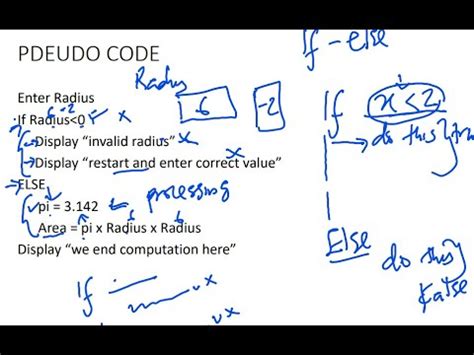 PDEUDO CODE
Enter Radius
If Radius<0
Display "invalid radius"
Display "restart and enter correct value"
ELSE
pi = 3.142
Area = pi x Radius x Radius
Display "we end computation here"
Radius
6
-2
6 -2
x
x
x
processing
6 6
If
x
x
If - else
If x < 2
do this
Else
do this
false